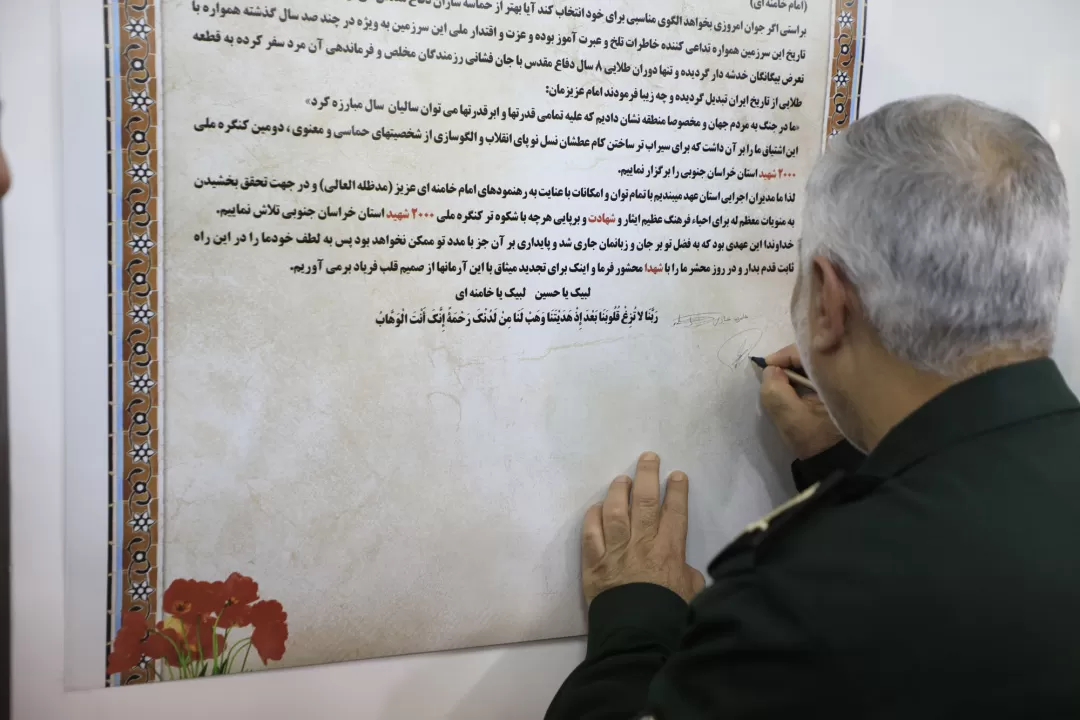 (امام خامنه ای)
براستی اگر جوان امروزی بخواهد الگوی مناسبی برای خود انتخاب کند آیا بهتر از حماسه سازان دفاع
تاریخ این سرزمین همواره تداعی کننده خاطرات تلخ و عبرت آموز بوده و عزت و اقتدار ملی این سرزمین به ویژه در چند صد سال گذشته همواره با
تعرض بیگانگان خدشه دار گردیده و تنها دوران طلایی ۸ سال دفاع مقدس با جان فشانی رزمندگان مخلص و فرماندهی آن مرد سفر کرده به قطعه
طلایی از تاریخ ایران تبدیل گردیده و چه زیبا فرمودند امام عزیزمان:
«ما در جنگ به مردم جهان و مخصوصا منطقه نشان دادیم که علیه تمامی قدرتها و ابرقدرتها می توان سالیان سال مبارزه کرد»
این اشتیاق ما را بر آن داشت که برای سیراب تر ساختن کام عطشان نسل نو پای انقلاب و الگوسازی از شخصیتهای حماسی و معنوی، دومین کنگره ملی
۲۰۰۰ شهید استان خراسان جنوبی را برگزار نماییم.
لذا ما مدیران اجرایی استان عهد میبندیم با تمام توان و امکانات با عنایت به رهنمودهای امام خامنه ای عزیز (مدظله العالی) و در جهت تحقق بخشیدن
به منویات معظم له برای احیاء فرهنگ عظیم ایثار و شهادت و برپایی هرچه با شکوه تر کنگره ملی ۲۰۰۰ شهید استان خراسان جنوبی تلاش نماییم.
خداوندا این عهدی بود که به فضل تو بر جان و زبانمان جاری شد و پایداری بر آن جز با مدد تو ممکن نخواهد بود پس به لطف خودما را در این راه
ثابت قدم بدار و در روز محشر ما را با شهدا محشور فرما و اینک برای تجدید میثاق با این آرمانها از صمیم قلب فریاد برمی آوریم.
لبیک یا حسین لبیک یا خامنه ای
رَبَّنَا لا تُزِغْ قُلُوبَنَا بَعْدَ إِذْ هَدَيْتَنَا وَهَبْ لَنَا مِنْ لَدُنْكَ رَحْمَةً إِنَّكَ أَنْتَ الْوَهَّابُ